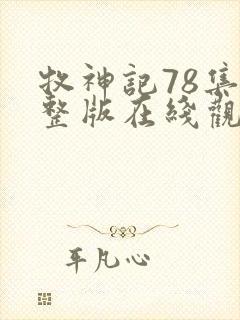 牧神記78集
整版在綫觀
平凡心